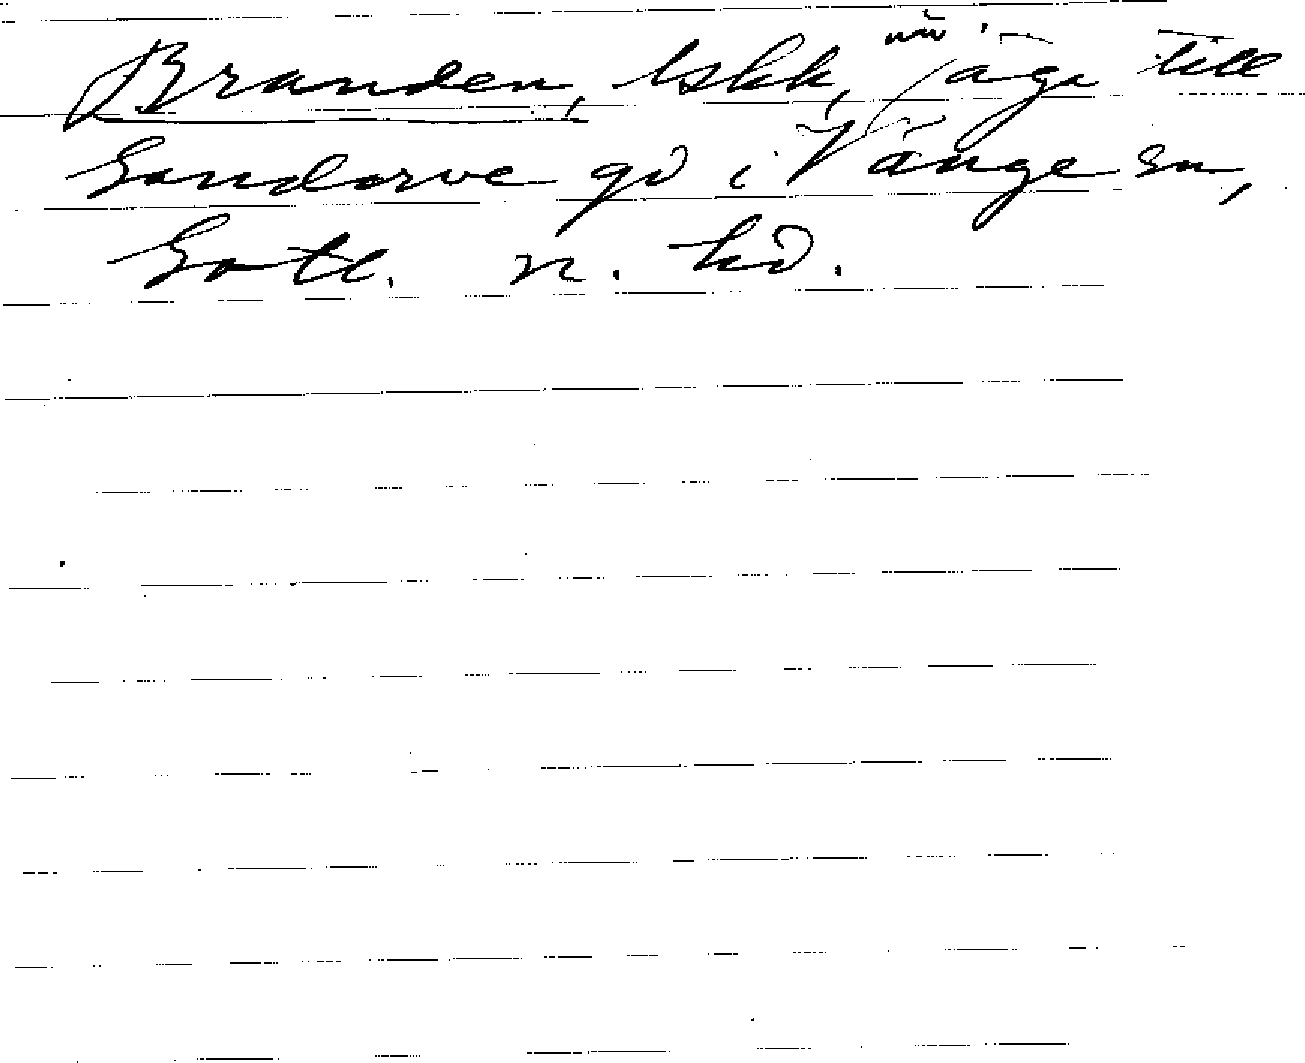 Branden, lskk, nu jäge till
Gandarve gd i Vänge sn,
Gotl. n. hd.